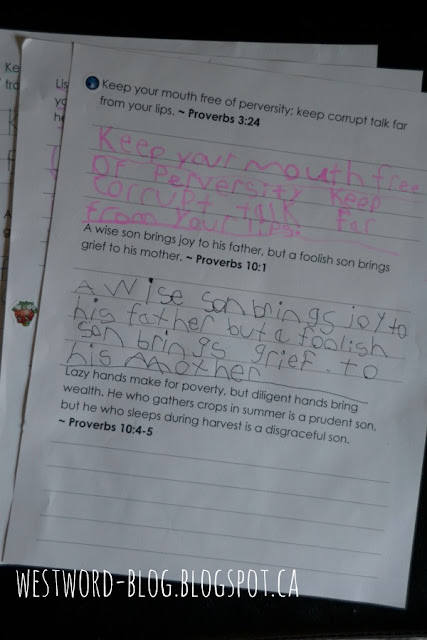 Keep your mouth free of perversity; keep corrupt talk far
from your lips. ~ Proverbs 3:24
Keep your mouth free
of perversity keep
corrupt talk far
from your lips.
A wise son brings joy to his father, but a foolish son brings
grief to his mother. ~ Proverbs 10:1
A wise son brings joy to
his father but a foolish
son brings grief. to
his mother
Lazy hands make for poverty, but diligent hands bring
wealth. He who gathers crops in summer is a prudent son,
but he who sleeps during harvest is a disgraceful son.
~ Proverbs 10:4-5
WESTWORD-BLOG.BLOGSPOT.CA